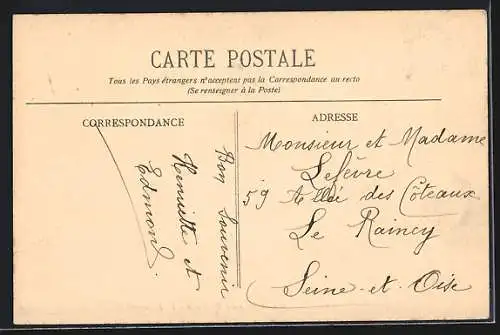 CARTE POSTALE
Tous les Pays étrangers n'acceptent pas la Correspondance au recto
(Se renseigner à la Poste)
CORRESPONDANCE
Bon Souvenir
Henriette et
Edmond.
ADRESSE
Monsieur et Madame
Lefèvre
59 Allée des Côteaux
Le Raincy
Seine-et-Oise